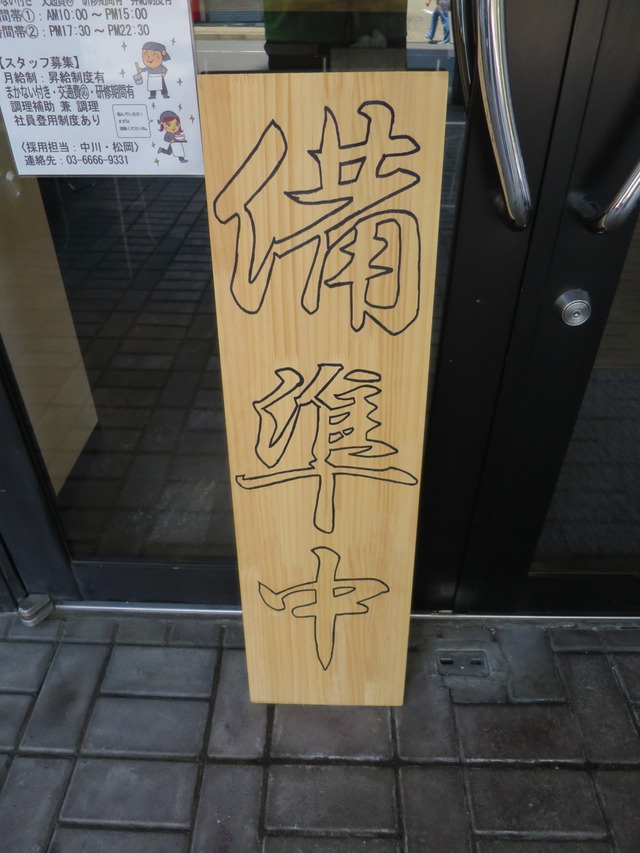 時間帯①：AM10:00 ～ PM15:00
時間帯②：PM17:30 ～ PM22:30
【スタッフ募集】
月給制：昇給制度有
まかない付き・交通費㊒・研修期間有
調理補助 兼 調理
社員登用制度あり
〈採用担当：中川・松岡〉
連絡先：03-6666-9331
備
準
中